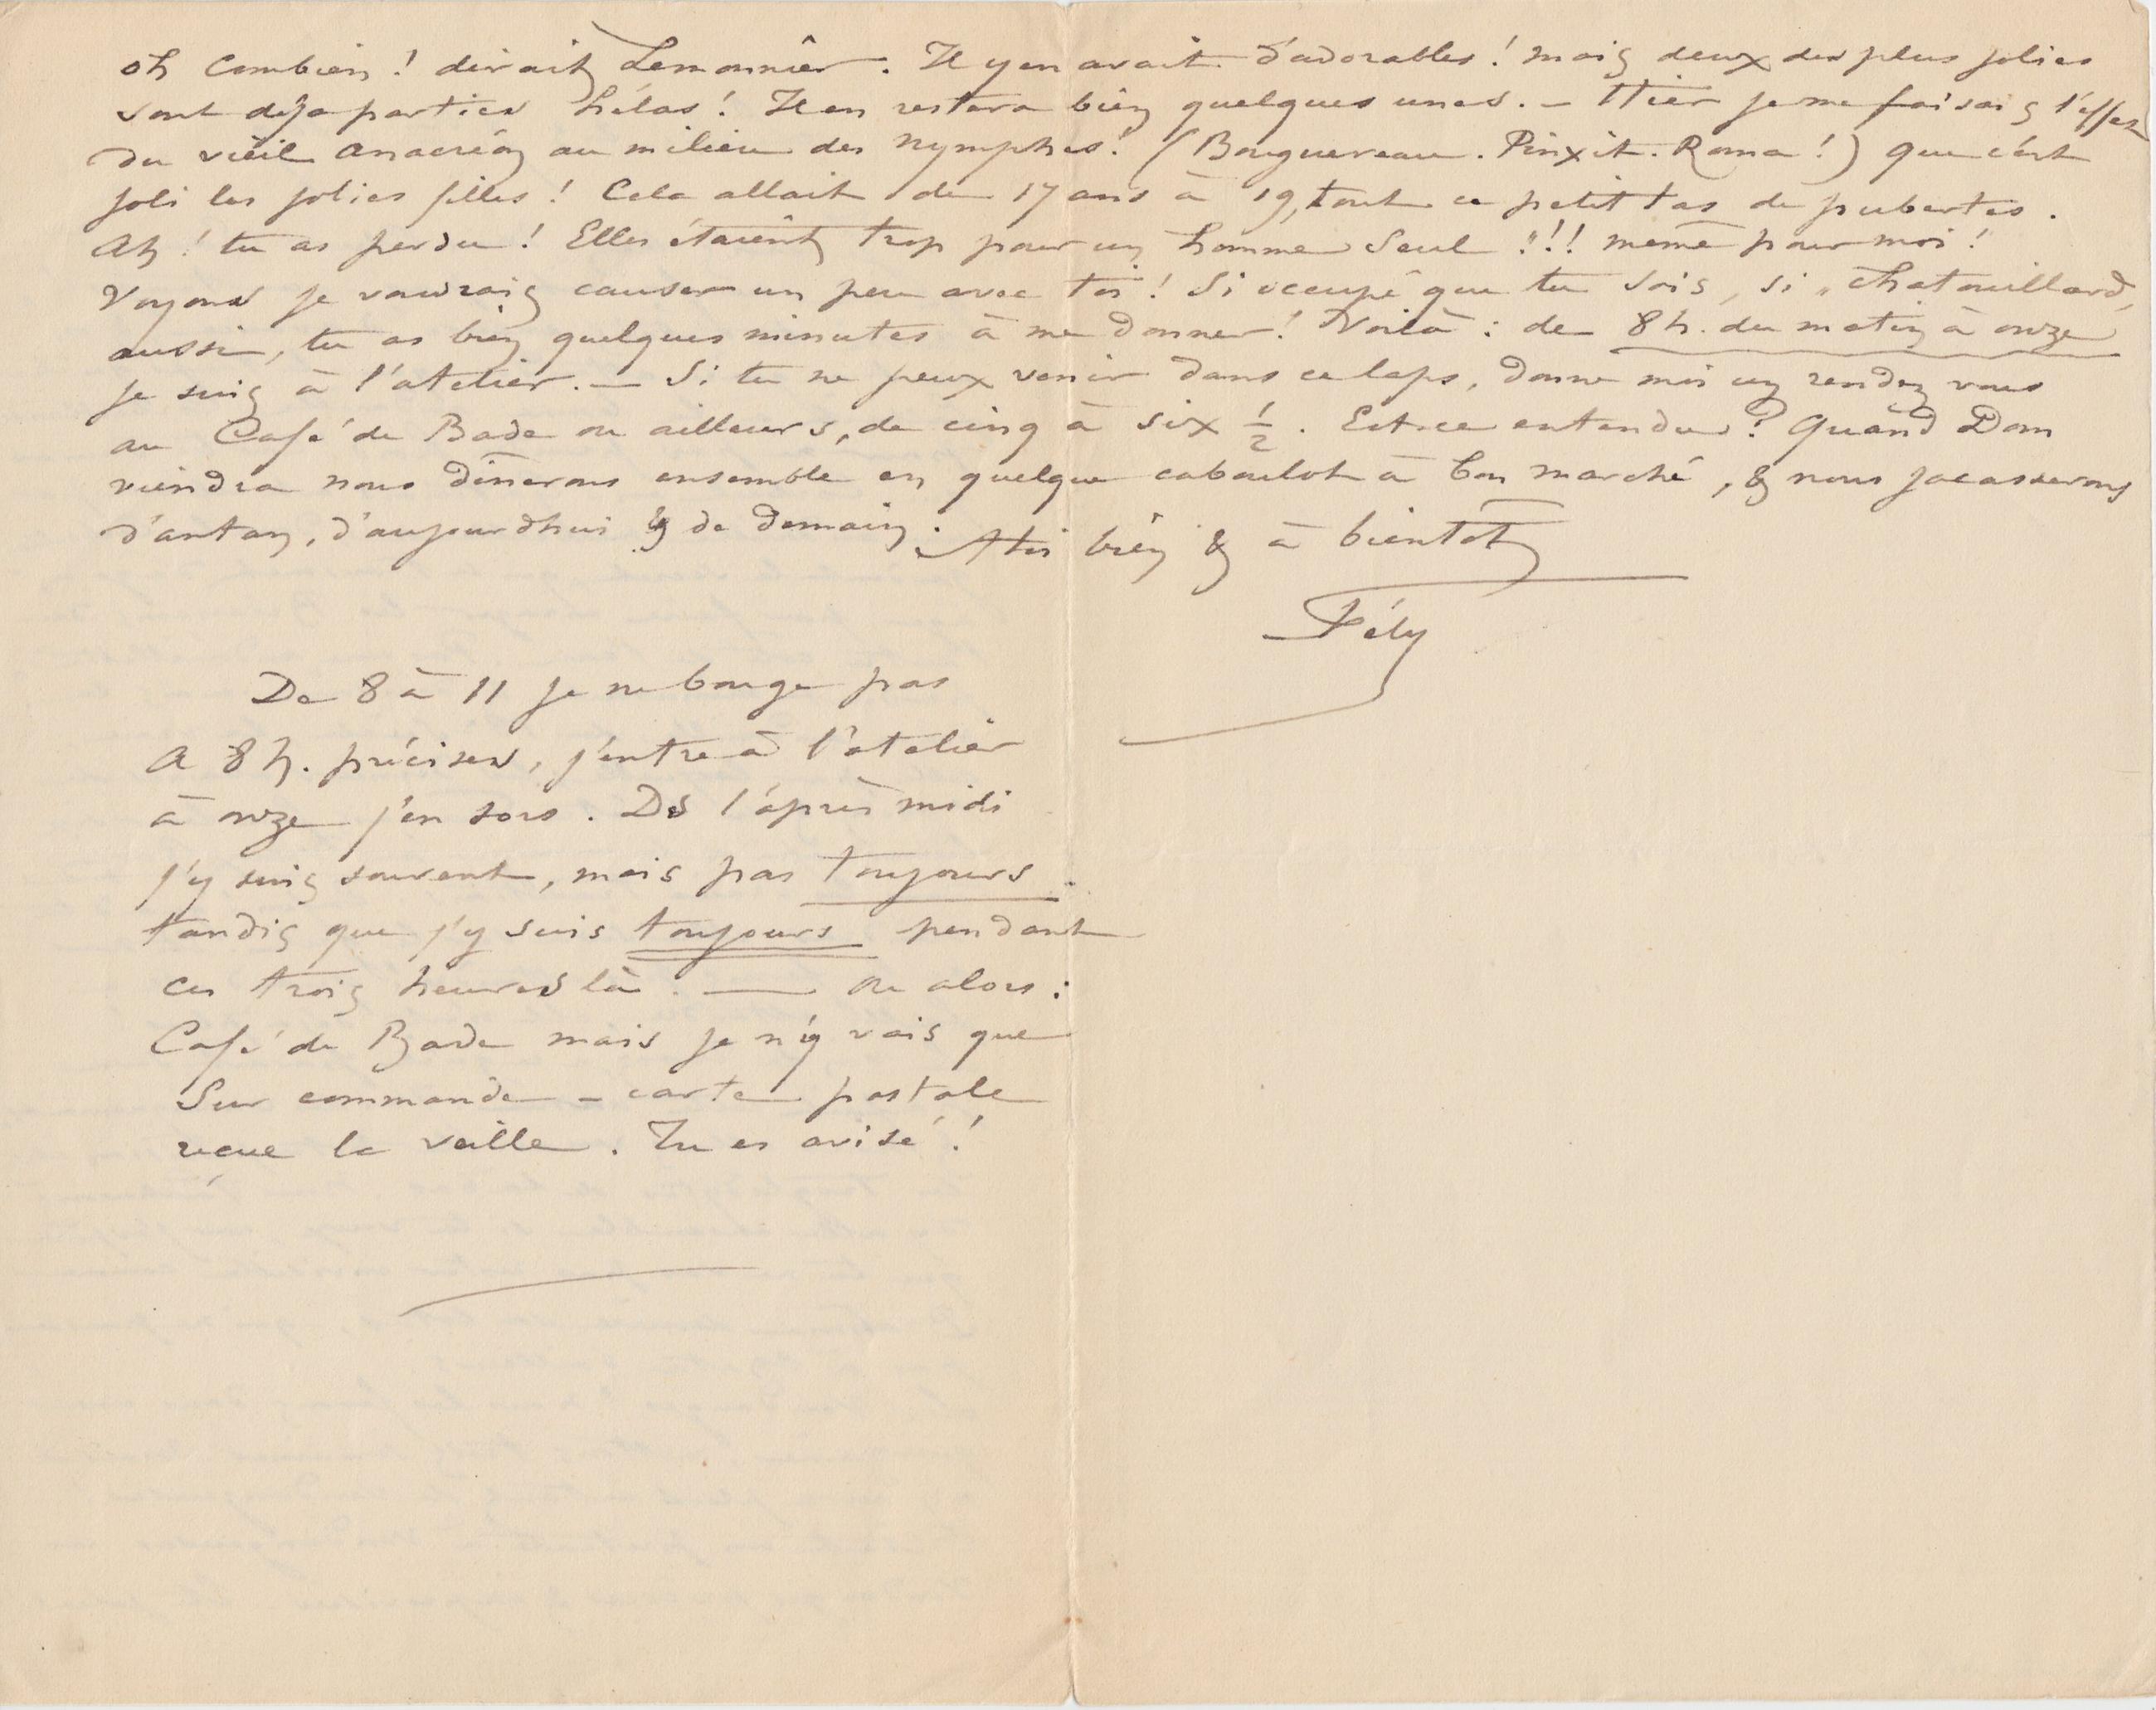 oh combien ! dirait Lemonnier. Il y en avait d'adorables ! mais deux des plus jolies
sont déja parties hélas ! Il en restera bien quelques unes. – Hier je me faisais l'effet
du vieil Anacréon au milieu des nymphes ! (Bouguereau. Pinxit. Roma !) que c'est
joli les jolies filles ! Cela allait de 17 ans à 19, tout ce petit tas de pubertés.
Ah ! tu as perdu ! Elles étaient trop pour un homme seul !!! même pour moi !
Voyons je voudrais causer un peu avec toi ! Si occupé que tu sois, si „chatouillard„
aussi, tu as bien quelques minutes à me donner ! Voilà : de 8 h. du matin à onze
je suis à l'atelier. — Si tu ne peux venir dans ce laps, donne moi un rendez vous
au Café de Bade ou ailleurs, de cinq à six ½. Est-ce entendu ? Quand Dom
viendra nous dinerons ensemble en quelque caboulot à bon marché, & nous jacasserons
d'antan, d'aujourdhui & de demain. A toi bien & à bientôt
Fély
De 8 à 11 je ne bouge pas
A 8 h. précises, j'entre à l'atelier
à onze j'en sors. Dès l'après midi
j'y suis souvent, mais pas toujours.
tandis que j'y suis toujours pendant
ces trois heures là. — ou alors :
Café de Bade mais je n'y vais que
sur commande – carte postale
reçue la veille. Tu es avisé !